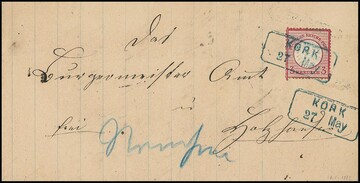 Das
KORK
27 May
3 KREUZER 3
Bürgermeister Amt
KORK
27 May
frei
in
Holzhausen